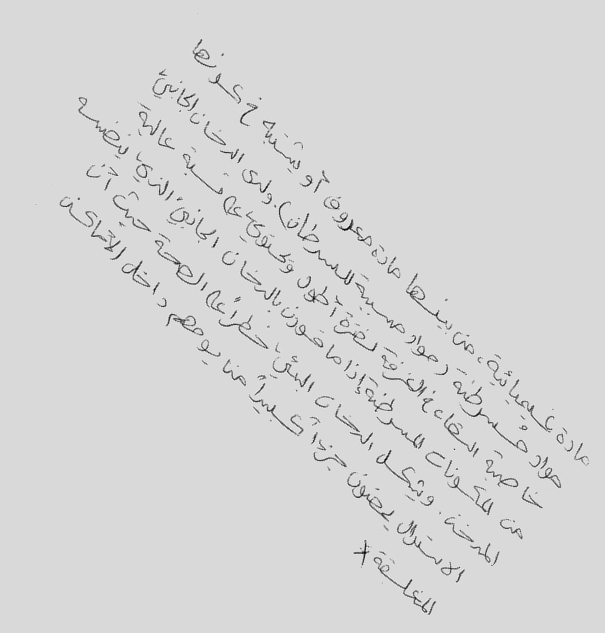 مادة غيميائية، من بينها مادة معروفة أو يشتبه في كونها
مواد مسرطنة (مواد مسببة للسرطان). ولدى الدخان الجانبيّ
خاصية البقاء في الغرفة لفترة أطول ويحتوي على نسبة عالية
من المكونات المسرطنة إذا ما قورن بالدخان الجانبيّ الذي ينفثه
المدخن. ويشكل الدخان البيئي خطراً على الصحة حيث أن
الأستراليين يمضون جزءاً كبيراً من يومهم داخل الأماكن
المغلقة *